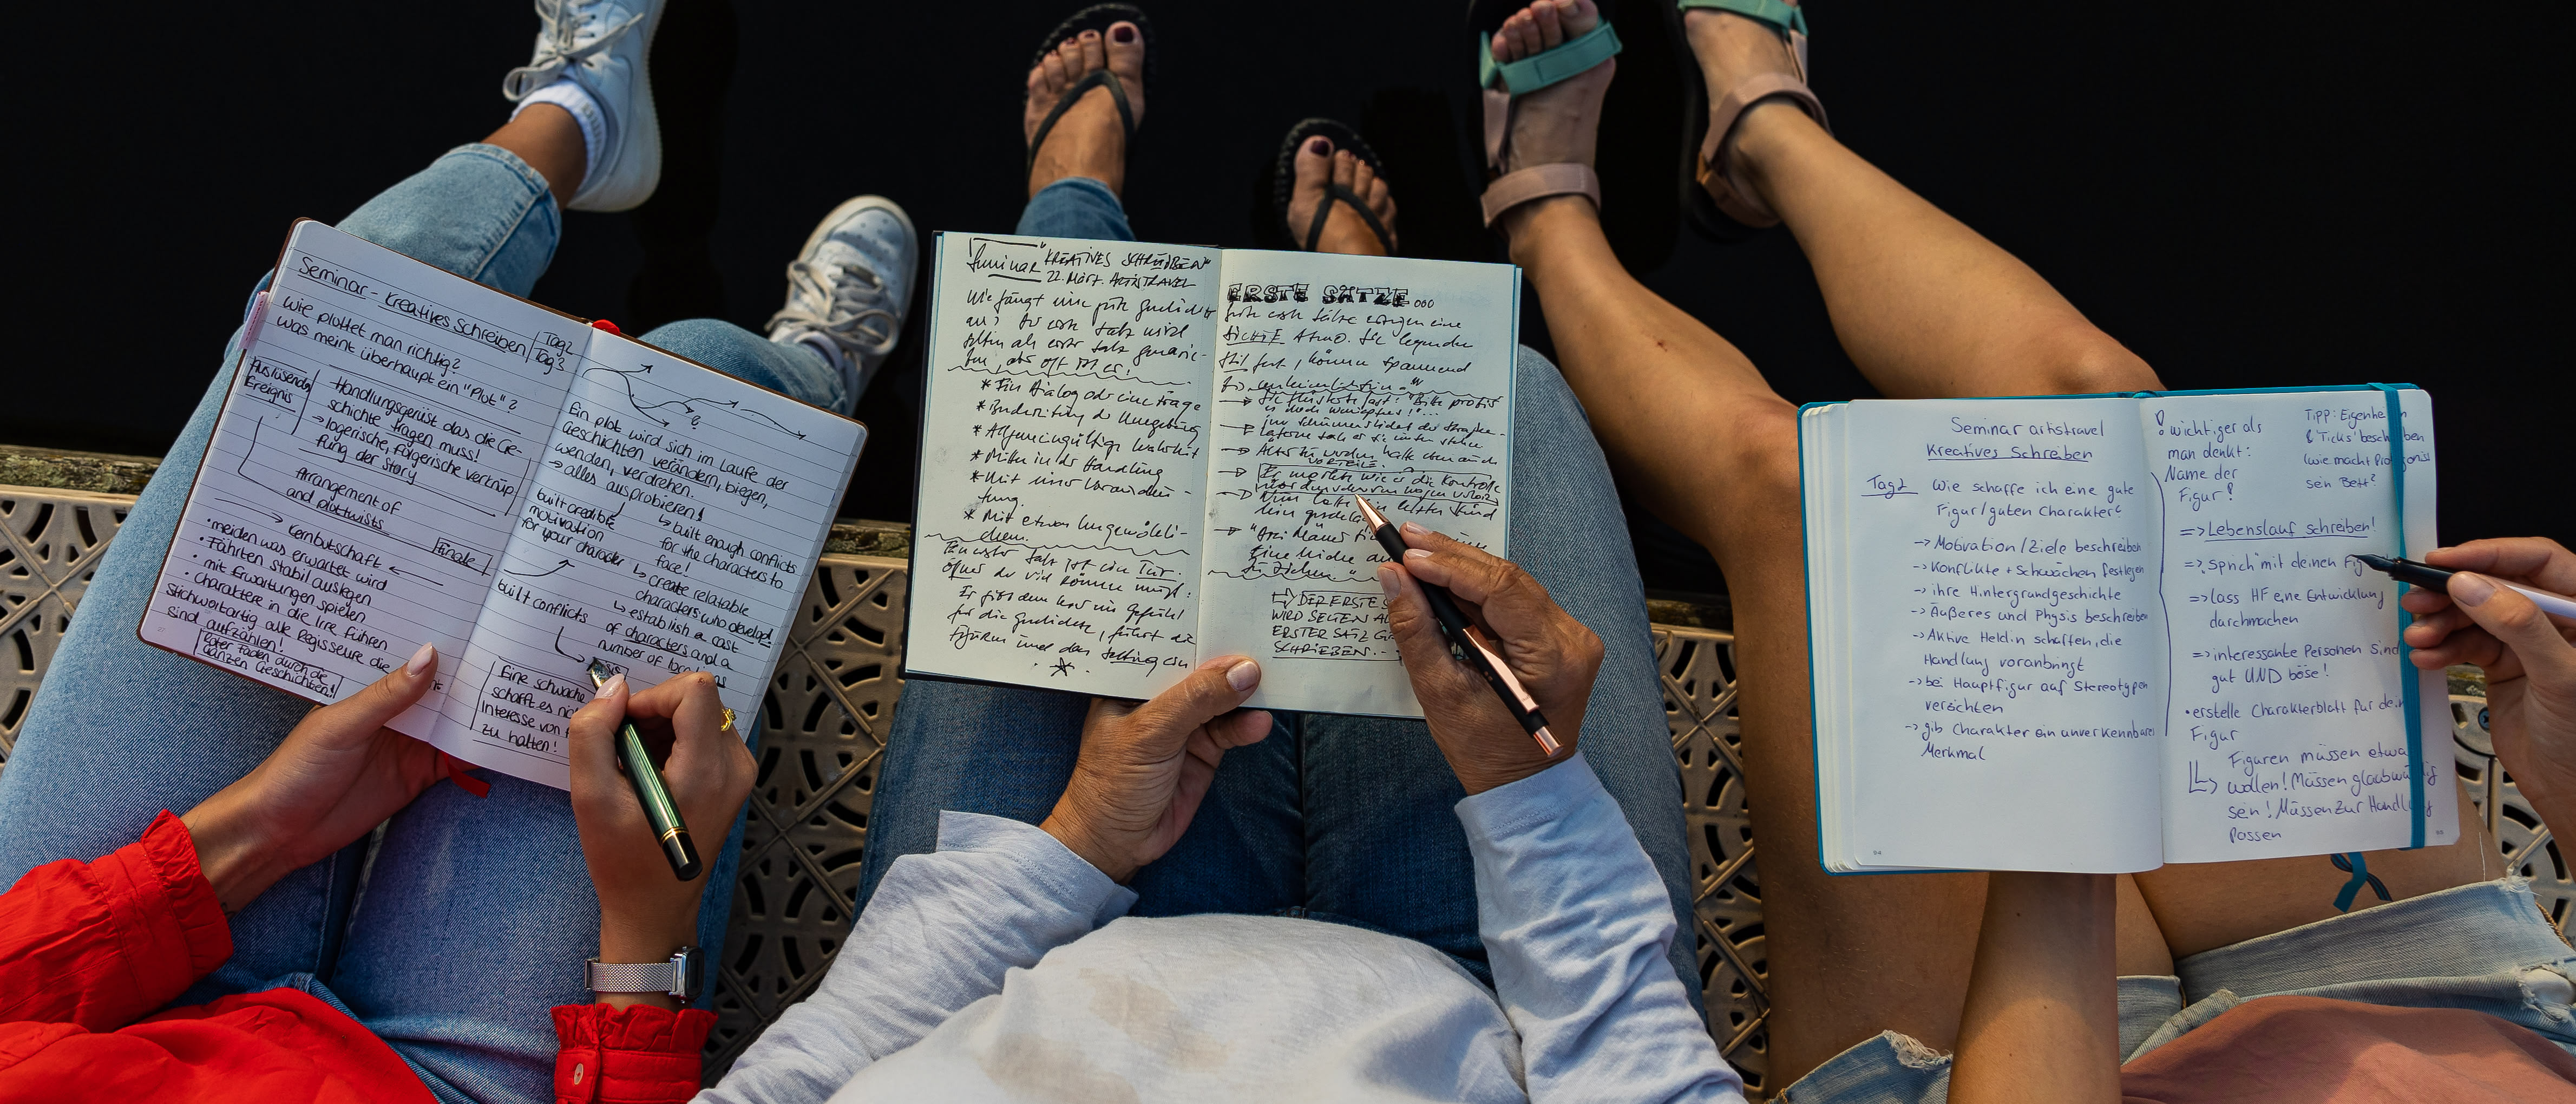 Seminar - Kreatives Schreiben
Tag2
Tag3
wie plottet man richtig?
was meint überhaupt ein "Plot"?
Auslösendes
Ereignis
Handlungsgerüst das die Ge-
schichte tragen muss!
→ logerische, folgerische Verknüp.
fung der Story
Arrangement of
and plottwists
→ Kernbotschaft ←
Finale
• meiden was erwartet wird
• Fährten stabil auslegen
mit Erwartungen spielen
• charaktere in die Irre führen
stichwortartig alle Regisseure die
sind aufzählen!
roter Faden durch die
ganzen Geschichten!
?
Ein plot wird sich im Laufe der
Geschichten verändern, biegen,
wenden, verdrehen.
→ alles ausprobieren!
built credible
motivation
for your character
↳ built enough conflicts
for the characters to
face!
↳ create relatable
characters who develop!
↳ establish a cast
of characters and a
number of
built conflicts
Eine schwache
schafft es
Interesse von
zu halten!
Seminar "KREATIVES SCHREIBEN"
22. März. ARTISTRAVEL
Wie fängt eine gute Geschichte
an? Der erste Satz wird
selten als erster Satz geschrie-
ben, aber oft ist er!
* Ein Dialog oder eine Frage
* Beschreibung der Umgebung
* Allgemeingültige Wahrheit
* Mitten in der Handlung
* Mit einer Vorausdeu-
tung
* Mit etwas Ungewöhnli-
chem.
Ein erster Satz ist eine Tür.
öffnet der viel können muss:
Er gibt dem Leser ein Gefühl
für die Geschichte, führt die
Figuren und das Setting ein
ERSTE SÄTZE...
Gute erste Sätze erzeugen eine
DICHTE Atmo. Sie legen den
Stil fest, können spannend
→ Sie flüsterte fast: "Bitte
→ Im Schimmerlicht der Straßen-
laterne sah er sie
VORTEILE.
→ Er merkte wie er die Kontrolle
über den Wagen verlor
→ Nun hatte in letzter
DER ERSTE
WIRD SELTEN AL
ERSTER SATZ GE
SCHRIEBEN.
Seminar artistravel
Kreatives Schreiben
Tag2
Wie schaffe ich eine gute
Figur/guten Charakter?
→ Motivation/Ziele beschreiben
→ Konflikte + Schwächen festlegen
→ ihre Hintergrundgeschichte
→ Äußeres und Physis beschreiben
→ Aktive Heldin schaffen, die
Handlung voranbringt
→ bei Hauptfigur auf Stereotypen
verzichten
→ gib Charakter ein unverkennbares
Merkmal
! wichtiger als
man denkt:
Name der
Figur!
Tipp: Eigenheiten
& 'Ticks' beschreiben
(wie macht Protagonist
sein Bett?
=> Lebenslauf schreiben!
=> "sprich" mit deinen
=> lass HF eine Entwicklung
durchmachen
=> interessante Personen sind
gut UND böse!
• erstelle Charakterblatt für dein
Figur
↳ Figuren müssen etwas
wollen! Müssen glaubwürdig
sein! Müssen zur Handlung
passen
94
95